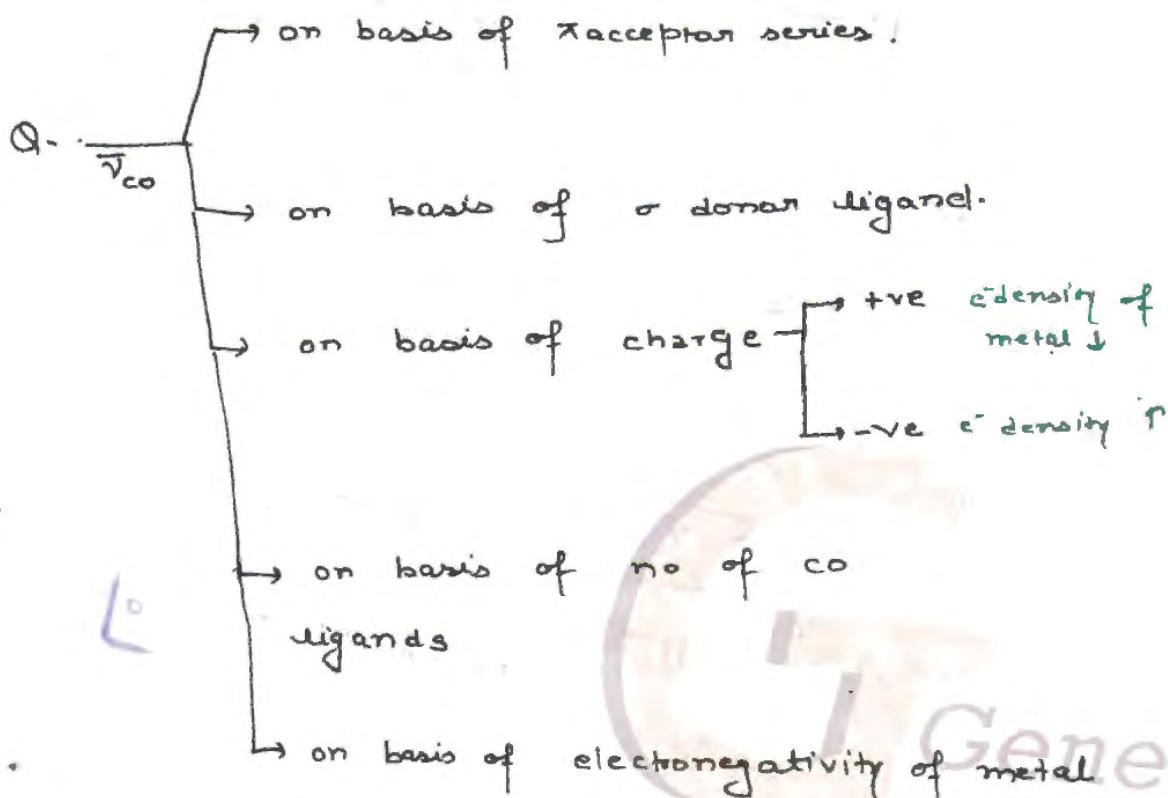 → on basis of π acceptor series.
Q-
ν̄co
→ on basis of σ donar ligand.
→ on basis of charge → +ve e⁻density of
metal ↓
→ -ve e⁻ density ↑
→ on basis of no of co
ligands
→ on basis of electronegativity of metal
Gene